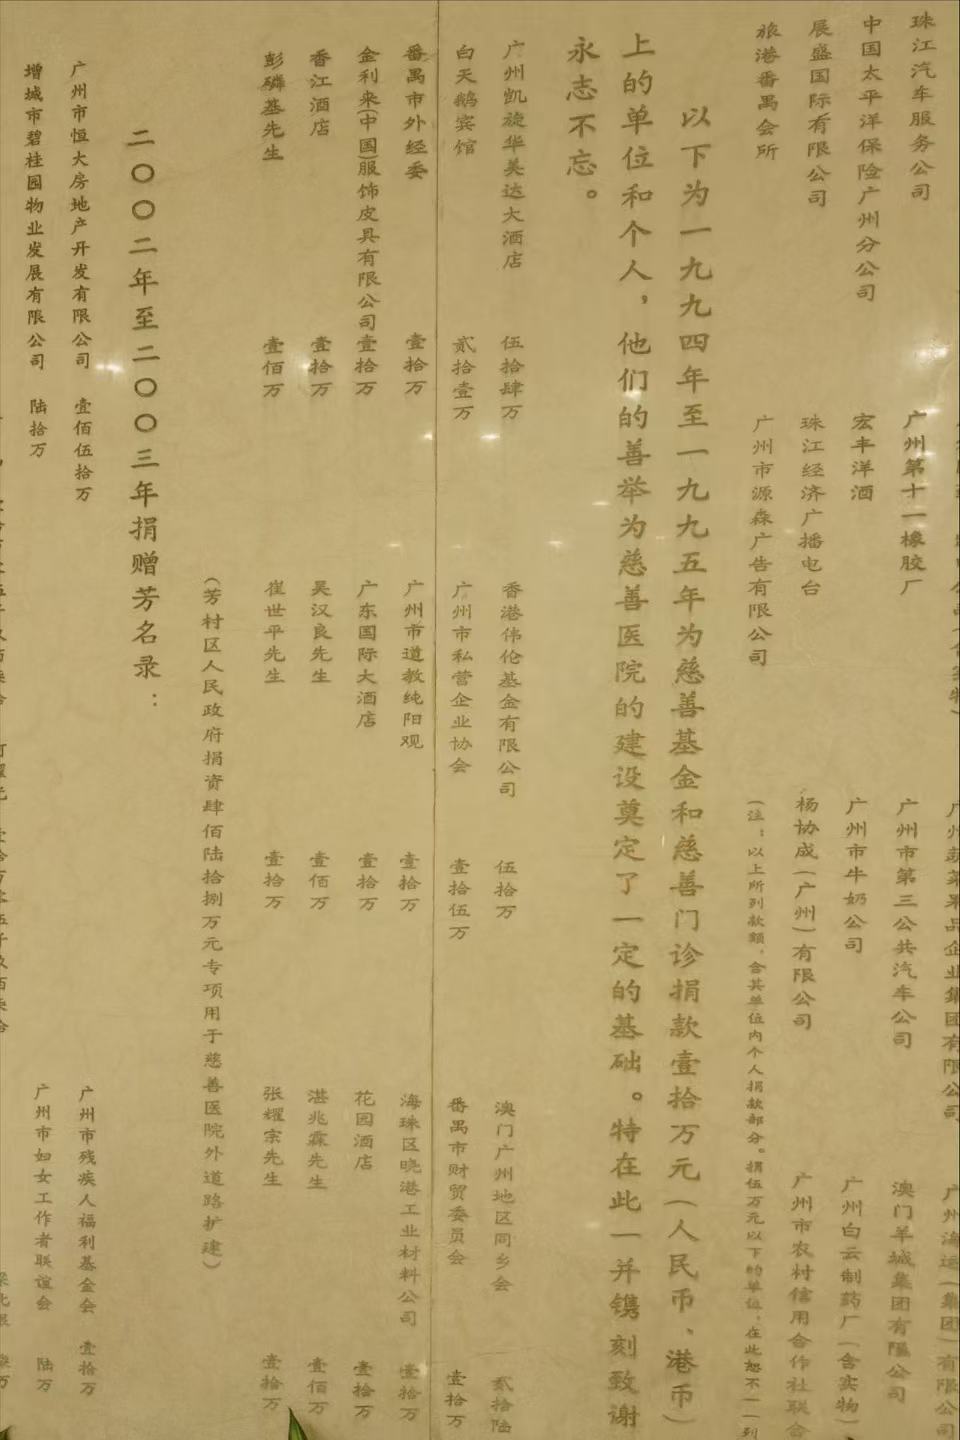 珠江汽车服务公司
广州第十一橡胶厂
广州市第三公共汽车公司
澳门羊城集团有限公司
中国太平洋保险广州分公司
宏丰洋酒
广州市牛奶公司
广州白云制药厂(含实物)
展盛国际有限公司
珠江经济广播电台
杨协成(广州)有限公司
广州市农村信用合作社联合
旅港番禺会所
广州市源森广告有限公司
(注:以上所列款额,含其单位内个人捐款部分。捐伍万元以下的单位,在此恕不一一列
以下为一九九四年至一九九五年为慈善基金和慈善门诊捐款壹拾万元(人民币、港币)
上的单位和个人,他们的善举为慈善医院的建设奠定了一定的基础。特在此一并镌刻致谢
永志不忘。
广州凯旋华美达大酒店 伍拾肆万
香港伟伦基金有限公司 伍拾万
澳门广州地区同乡会 贰拾陆
白天鹅宾馆 贰拾壹万
广州市私营企业协会 壹拾伍万
番禺市财贸委员会 壹拾万
番禺市外经委 壹拾万
广州市道教纯阳观 壹拾万
海珠区晓港工业材料公司 壹拾万
金利来(中国)服饰皮具有限公司 壹拾万
广东国际大酒店 壹拾万
花园酒店 壹拾万
香江酒店 壹拾万
吴汉良先生 壹佰万
湛兆霖先生 壹佰万
彭磷基先生 壹佰万
崔世平先生 壹拾万
张耀宗先生 壹拾万
(芳村区人民政府捐资肆佰陆拾捌万元专项用于慈善医院外道路扩建)
二〇〇二年至二〇〇三年捐赠芳名录:
广州市恒大房地产开发有限公司 壹佰伍拾万
广州市残疾人福利基金会 壹拾万
增城市碧桂园物业发展有限公司 陆拾万
广州市妇女工作者联谊会 陆万